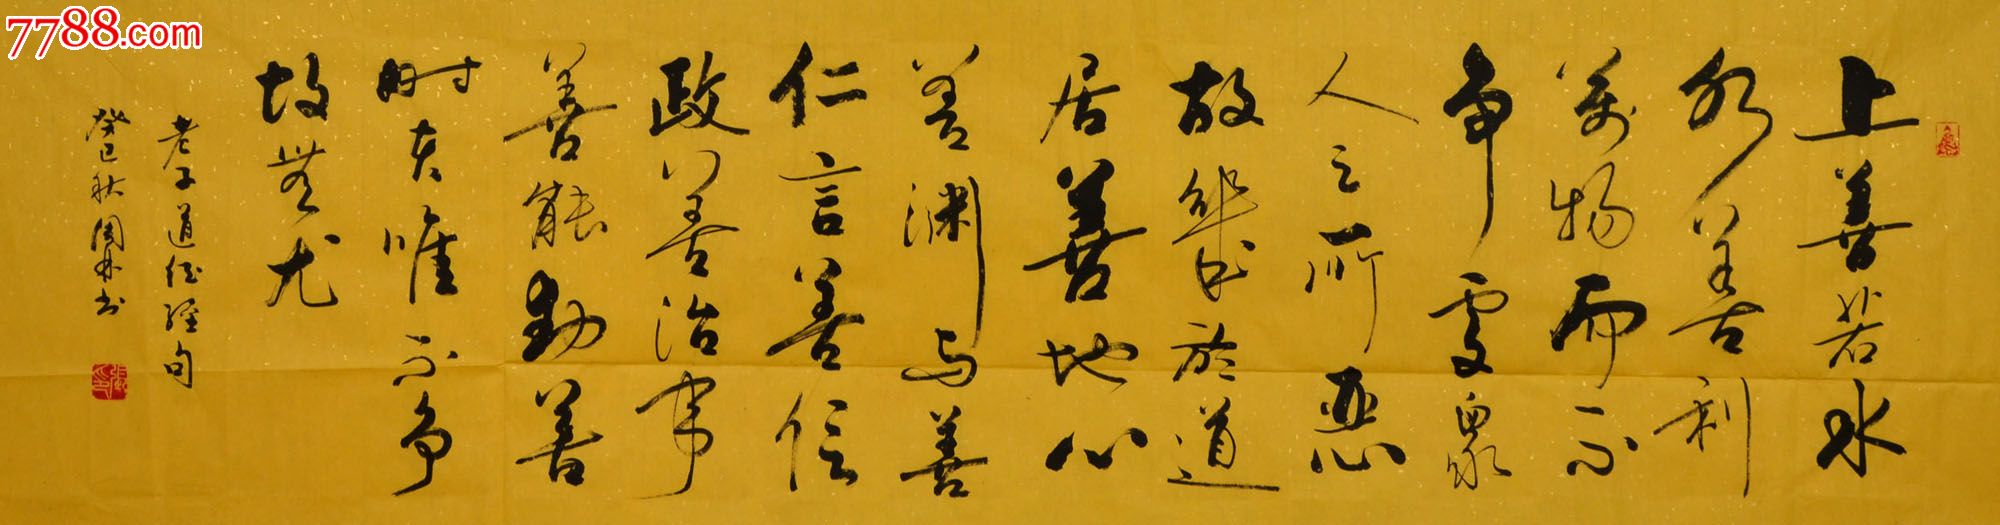 7788.com
上善若水
水善利
萬物而不
争處衆
人之所惡
故幾於道
居善地心
善渊与善
仁言善信
政善治事
善能動善
时夫惟不争
故無尤
老子道德经句
癸巳秋林书